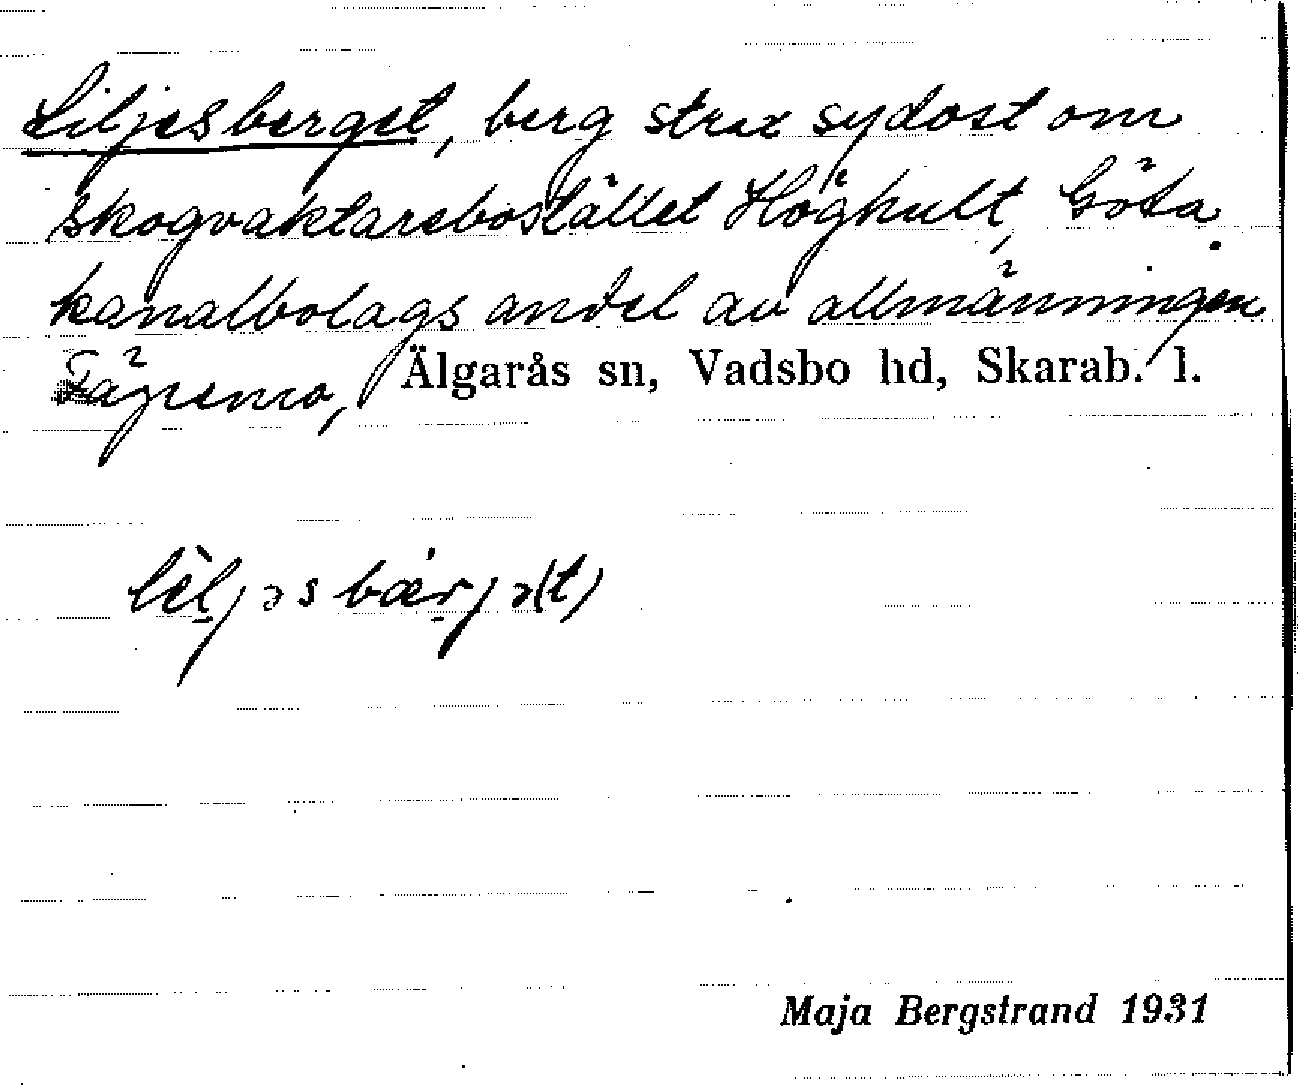 Liljesberget, berg strax sydost om
skogvaktarebostället Höghult, Göta
kanalbolags andel av allmänningen
Fägremo, Älgarås sn, Vadsbo hd, Skarab. l.
lìljəsbær̍jə(t)
Maja Bergstrand 1931